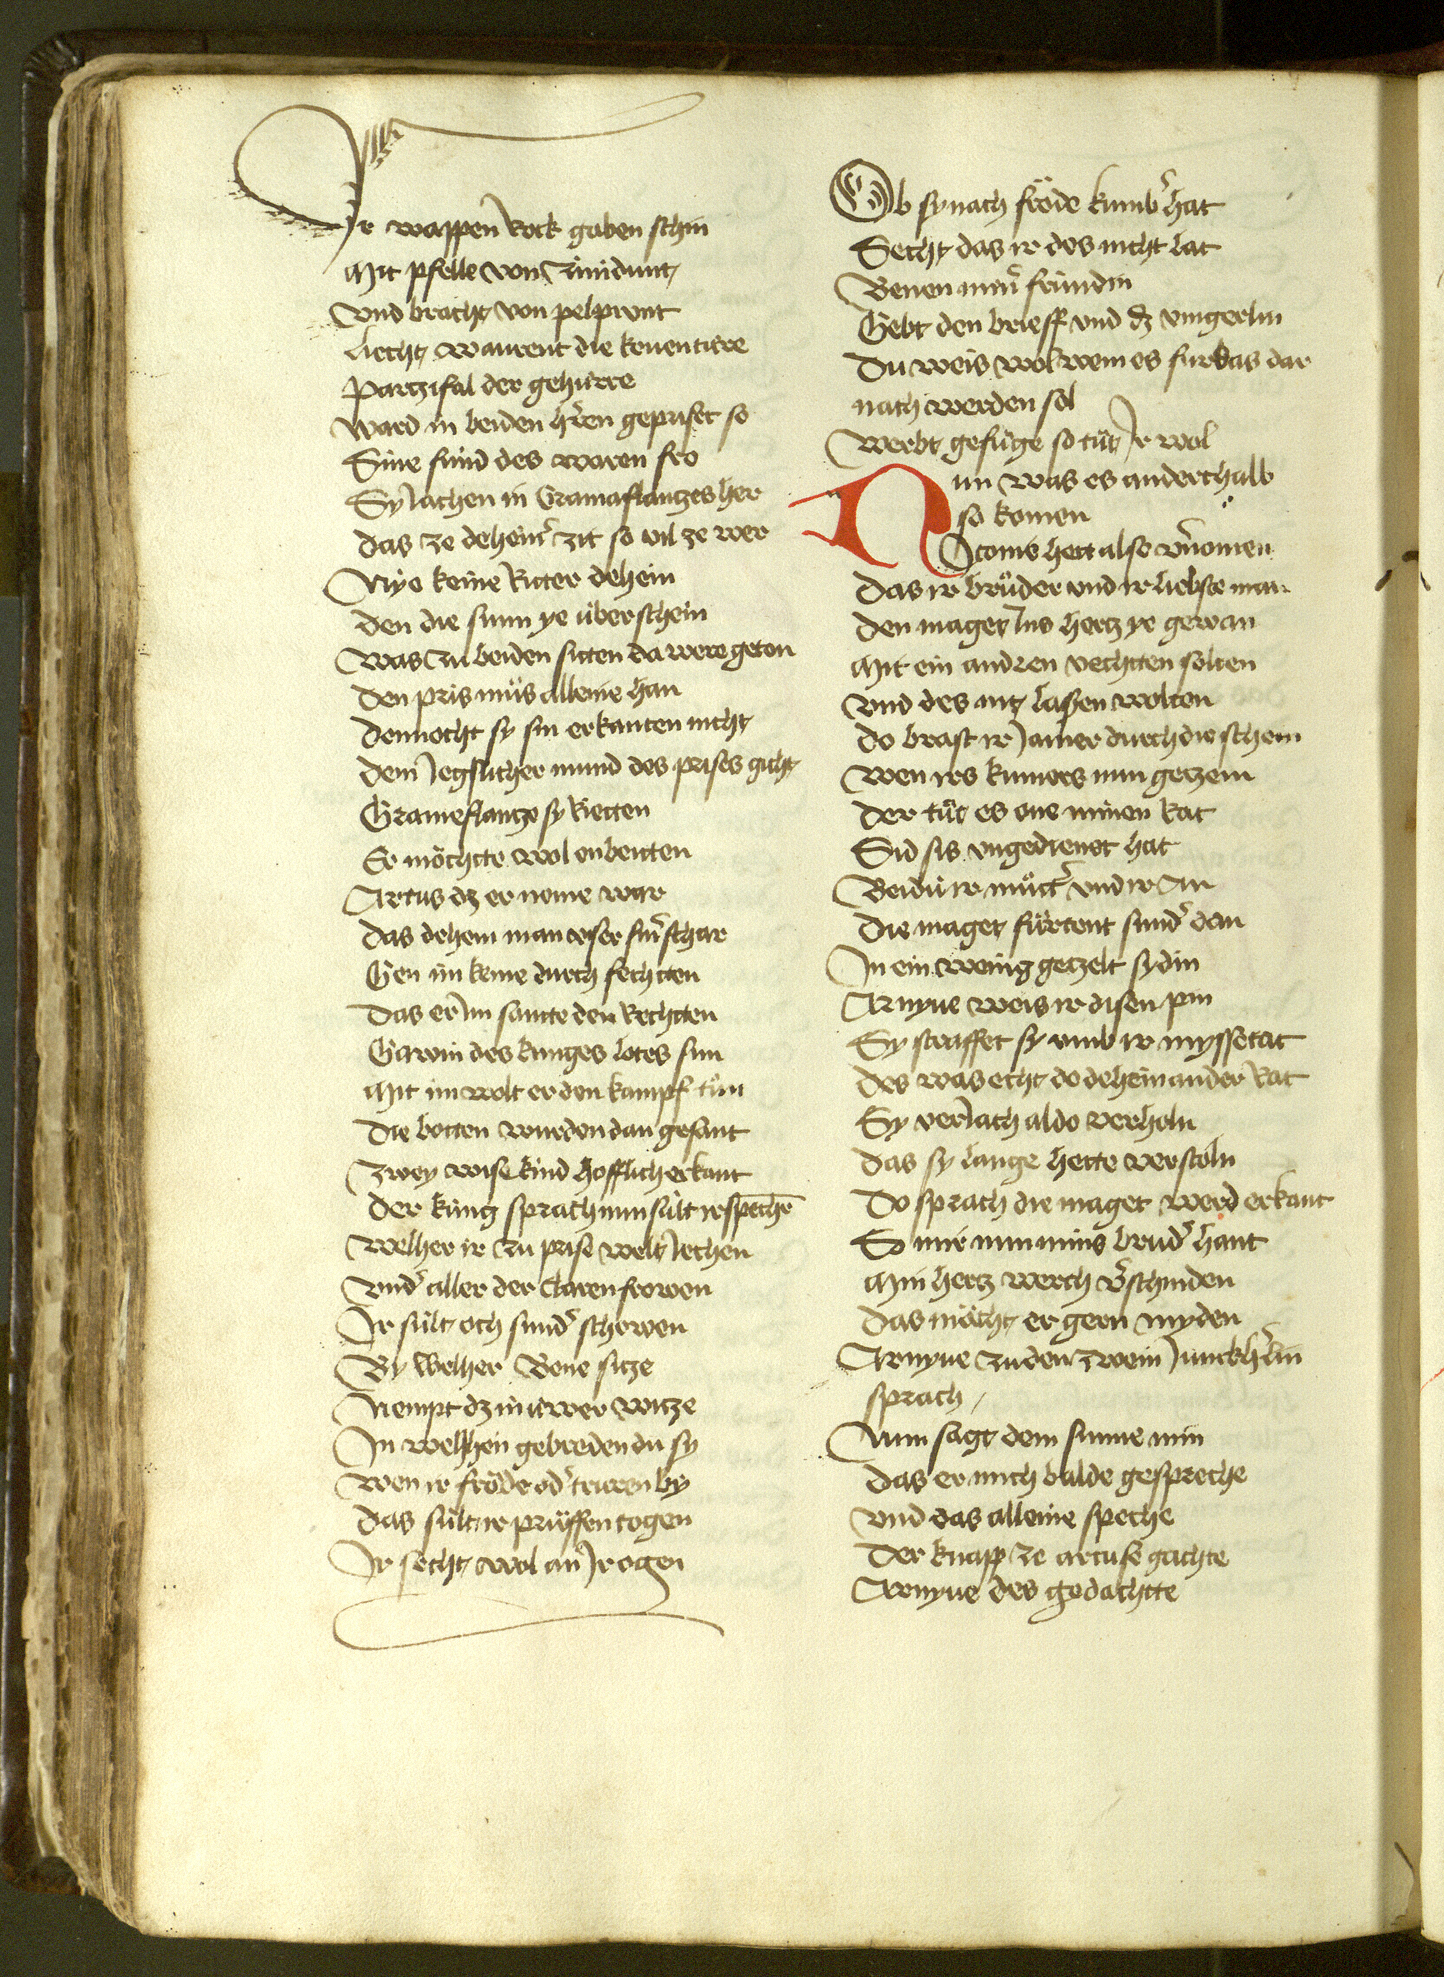 Ir wappen Rock gaben schin
Mit pfelle von Zinidunt
Vnd bracht von pelprunt
Liecht warent die kouentúre
Partzifal der gehúrre
Ward in beiden hͤren geprisset so
Sine fúnd des waren fro
Sy Jachen in Gramaflantzes her
Das ze deheinr̾ zit so vil ze wer
Nye keine Ritter dehein
Den die sunn ye úberschein
Was zu beiden sitten da were geton
Den pris mús alleine han
Dennocht sy sin erkanten nicht
Dem Jegslicher mund des prises gicht
Grameflantze sy Rietten
Er móchtte wol enbietten
Artus dz er neme war
Das dehein man vser sinr̾ schar
Gen im keme durch fechtten
Das er Jm sante den Rechtten
Gawin des kunges Lotes sun
Mit im wolt er den kampf tún
Die botten wurden dan gesant
Zwey wise kind hofflich erkant
Der kúng sprach nun súlt ir spechē
Welher ir zu prise welt Jechen
Vnd̾ aller der claren frowen
Ir súlt och sund̾ schowen
By welher Bene sitze
Nempt dz in úwer witze
In welhen gebreden du sy
Wen ir fróde od̾ truren by
Das súlt ir prúffen togen
Ir secht wol an Jr ogen
Ob sy nach fróde kumb̾ hat
Secht das ir des nicht lat
Benen minr̾ fründin
Gebt den brieff vnd dz vingerlin
Du weis wol wem es furbas dar
nach werden sol
Werbt gefúge so tút Jr wol
Nun was es anderthalb
so komen
Jtonie hett also v̾nomen
Das ir brúder vnd ir liebste man
Den maget Jns hertz ye gewan
Mit ein andren vechtten solten
Vnd des nit laßen wolten
Do brast ir Jamer durch die schem
Wen irs kumers nun getzem
Der tút es one minen Rat
Sid sis vngedienet hat
Beidú ir mútt̾ vnd ir an
Die maget fúrtent sund̾ dan
In ein wenig getzelt sydin
Arnyue weis ir disen pin
Sy straffet sy vmb ir myssetat
Des was echt do dehein ander Rat
Sy verJach aldo verholn
Das sy lange hette verstoln
Do sprach die maget werd erkant
So mir nun mins brud̾ hant
Min hertz werch v̾schniden
Das möcht er gern myden
Arnyue zu den zwein Junckh̾lin
sprach /
Nun sagt dem sunne min
Das er mich balde gespreche
Vnd das alleine speche
Der knapp ze artuse gachte
Arnyue des gedachtte